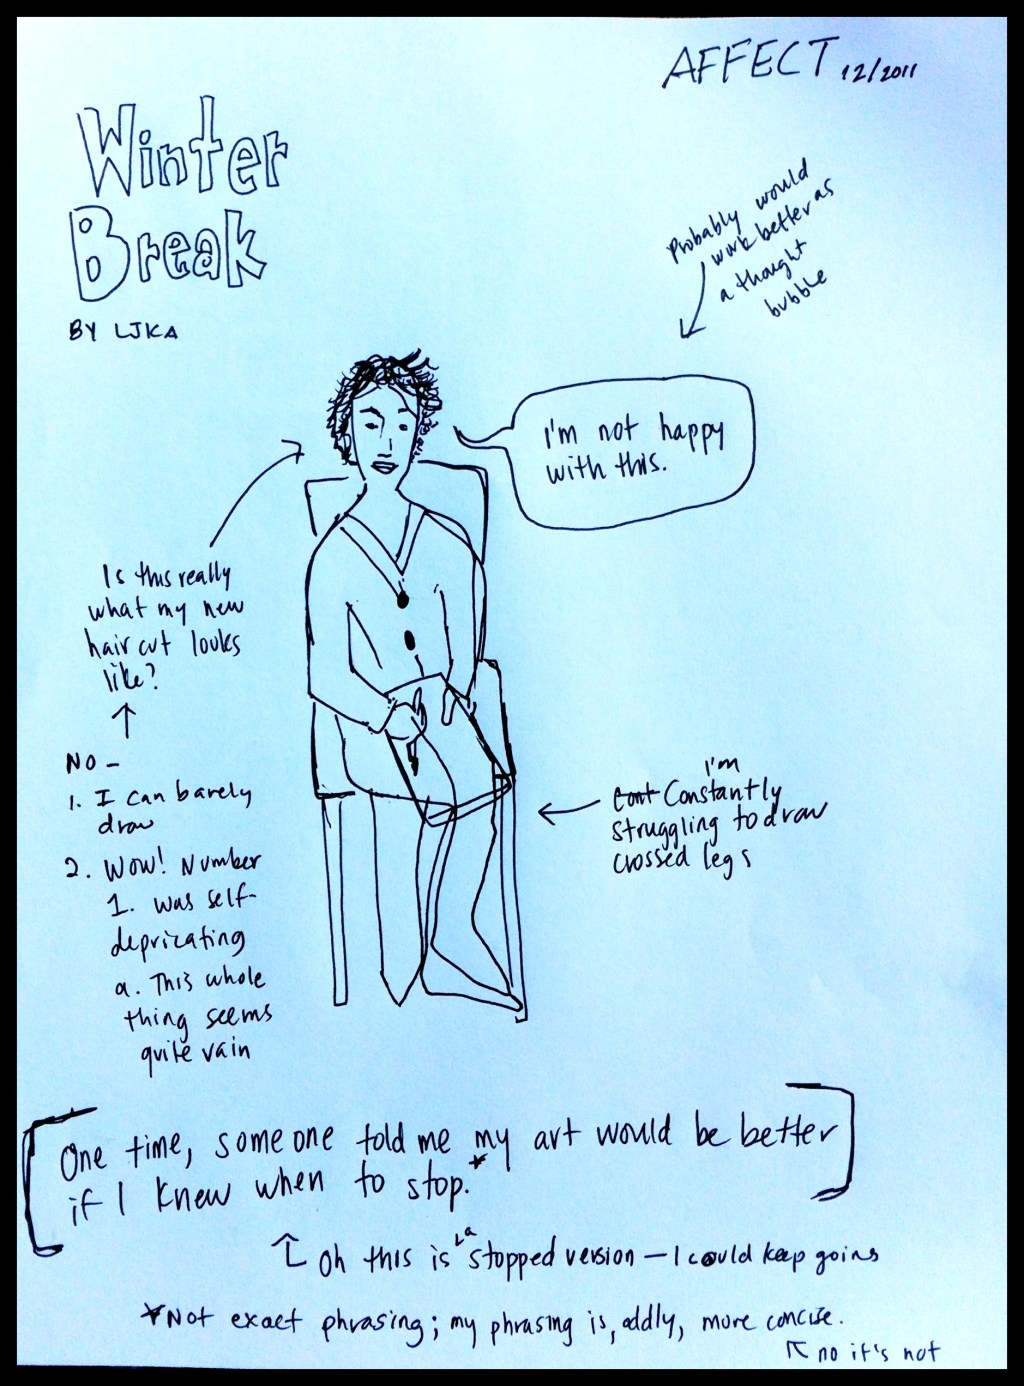 AFFECT 12/2011
Winter
Break
BY LJKA
Probably would
work better as
a thought
bubble
I'm not happy
with this.
Is this really
what my new
hair cut looks
like?
NO -
1. I can barely
draw
2. Wow! Number
1. was self-
depricating
a. This whole
thing seems
quite vain
I'm
Cont Constantly
struggling to draw
crossed legs
[One time, someone told me my art would be better
if I knew when to stop.*]
Oh this is a stopped version – I could keep going
*Not exact phrasing; my phrasing is, oddly, more concise.
no it's not